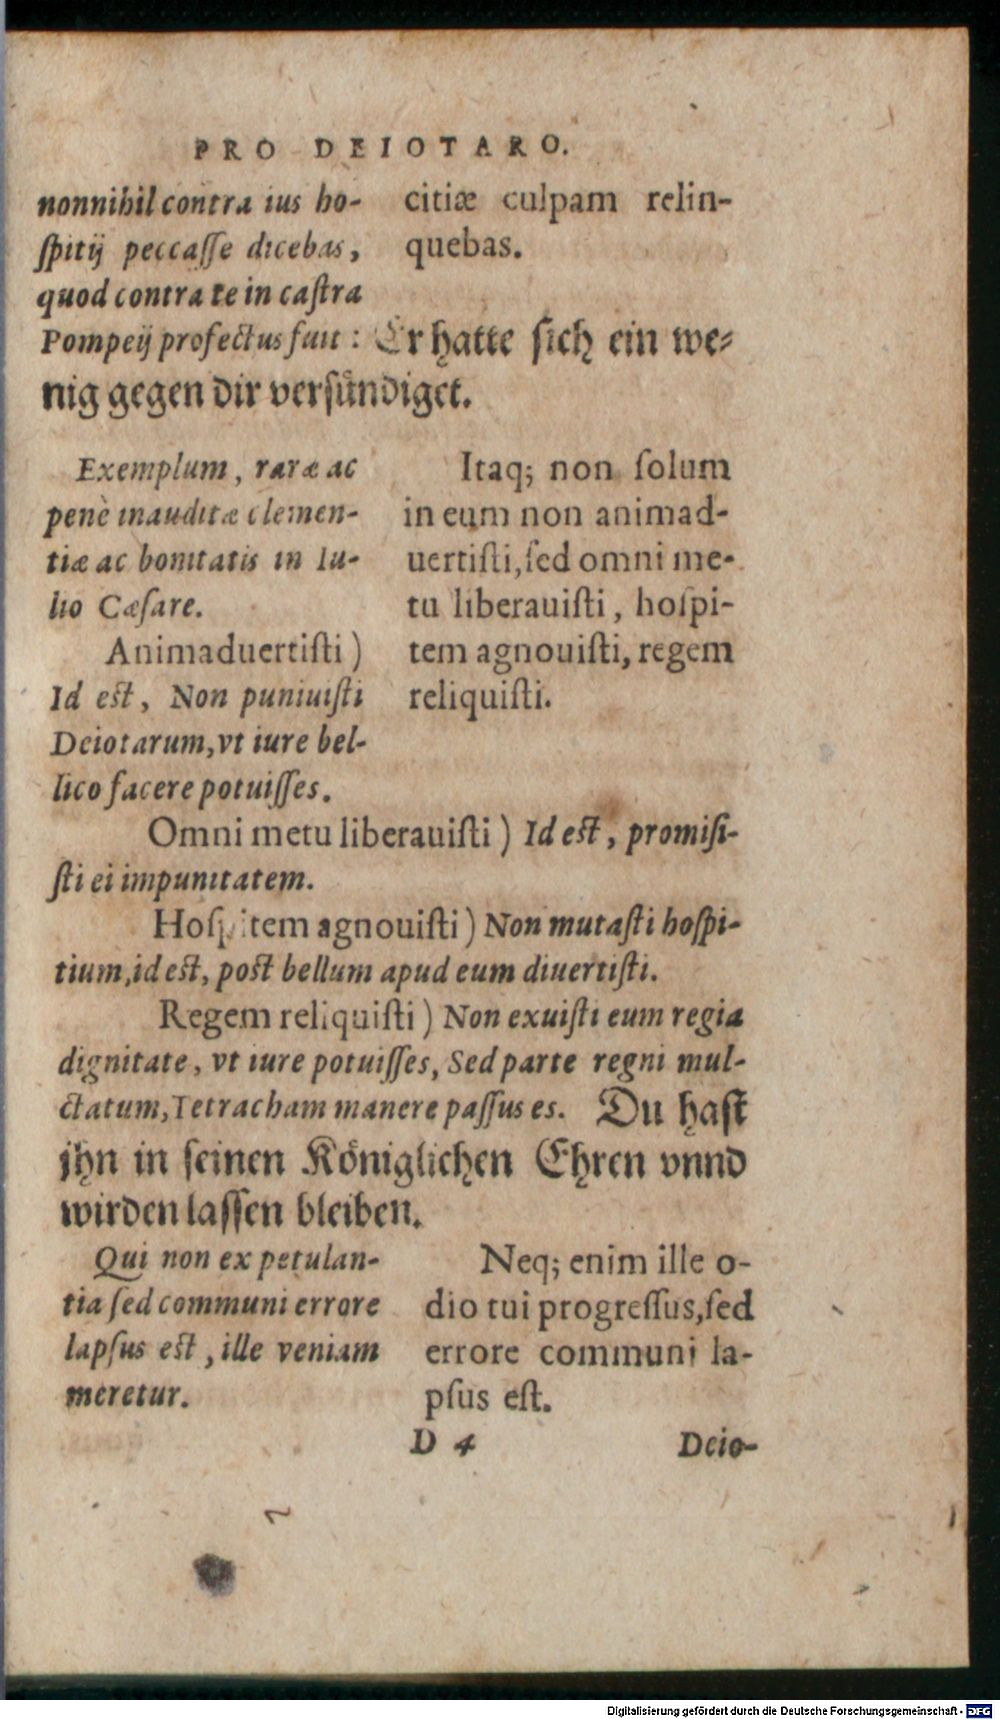 PRO DEIOTARO.
nonnihil contra ius ho-
spitij peccasse dicebas,
quod contra te in castra
Pompeij profectus fuit: Er hatte sich ein we-
nig gegen dir versündiget.
citiæ culpam relin-
quebas.
Exemplum, raræ ac
penè inauditæ clemen-
tiæ ac bonitatis in Iu-
lio Cæsare.
Animaduertisti)
Id est, Non puniuisti
Deiotarum, vt iure bel-
lico facere potuisses.
Itaq; non solum
in eum non animad-
uertisti, sed omni me-
tu liberauisti, hospi-
tem agnouisti, regem
reliquisti.
Omni metu liberauisti) Id est, promisi-
sti ei impunitatem.
Hospitem agnouisti) Non mutasti hospi-
tium, id est, post bellum apud eum diuertisti.
Regem reliquisti) Non exuisti eum regia
dignitate, vt iure potuisses, Sed parte regni mul-
ctatum, Tetracham manere passus es. Du hast
jhn in seinen Königlichen Ehren vnnd
wirden lassen bleiben.
Qui non ex petulan-
tia sed communi errore
lapsus est, ille veniam
meretur.
Neq; enim ille o-
dio tui progressus, sed
errore communi la-
psus est.
D 4
Deio-
Digitalisierung gefördert durch die Deutsche Forschungsgemeinschaft - DFG